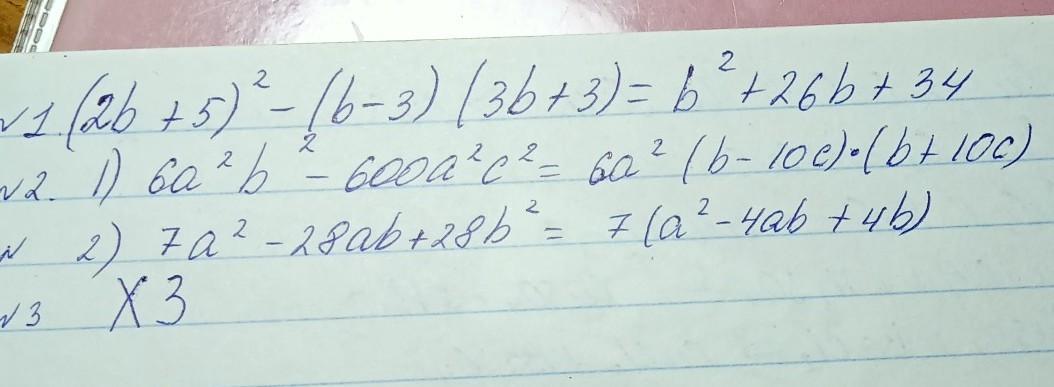 √1. (2b + 5)² - (b - 3) (3b + 3) = b² + 26b + 34
√2. 1) 6a²b² - 600a²c² = 6a² (b - 10c)·(b + 10c)
N 2) 7a² - 28ab + 28b² = 7 (a² - 4ab + 4b)
√3 X3